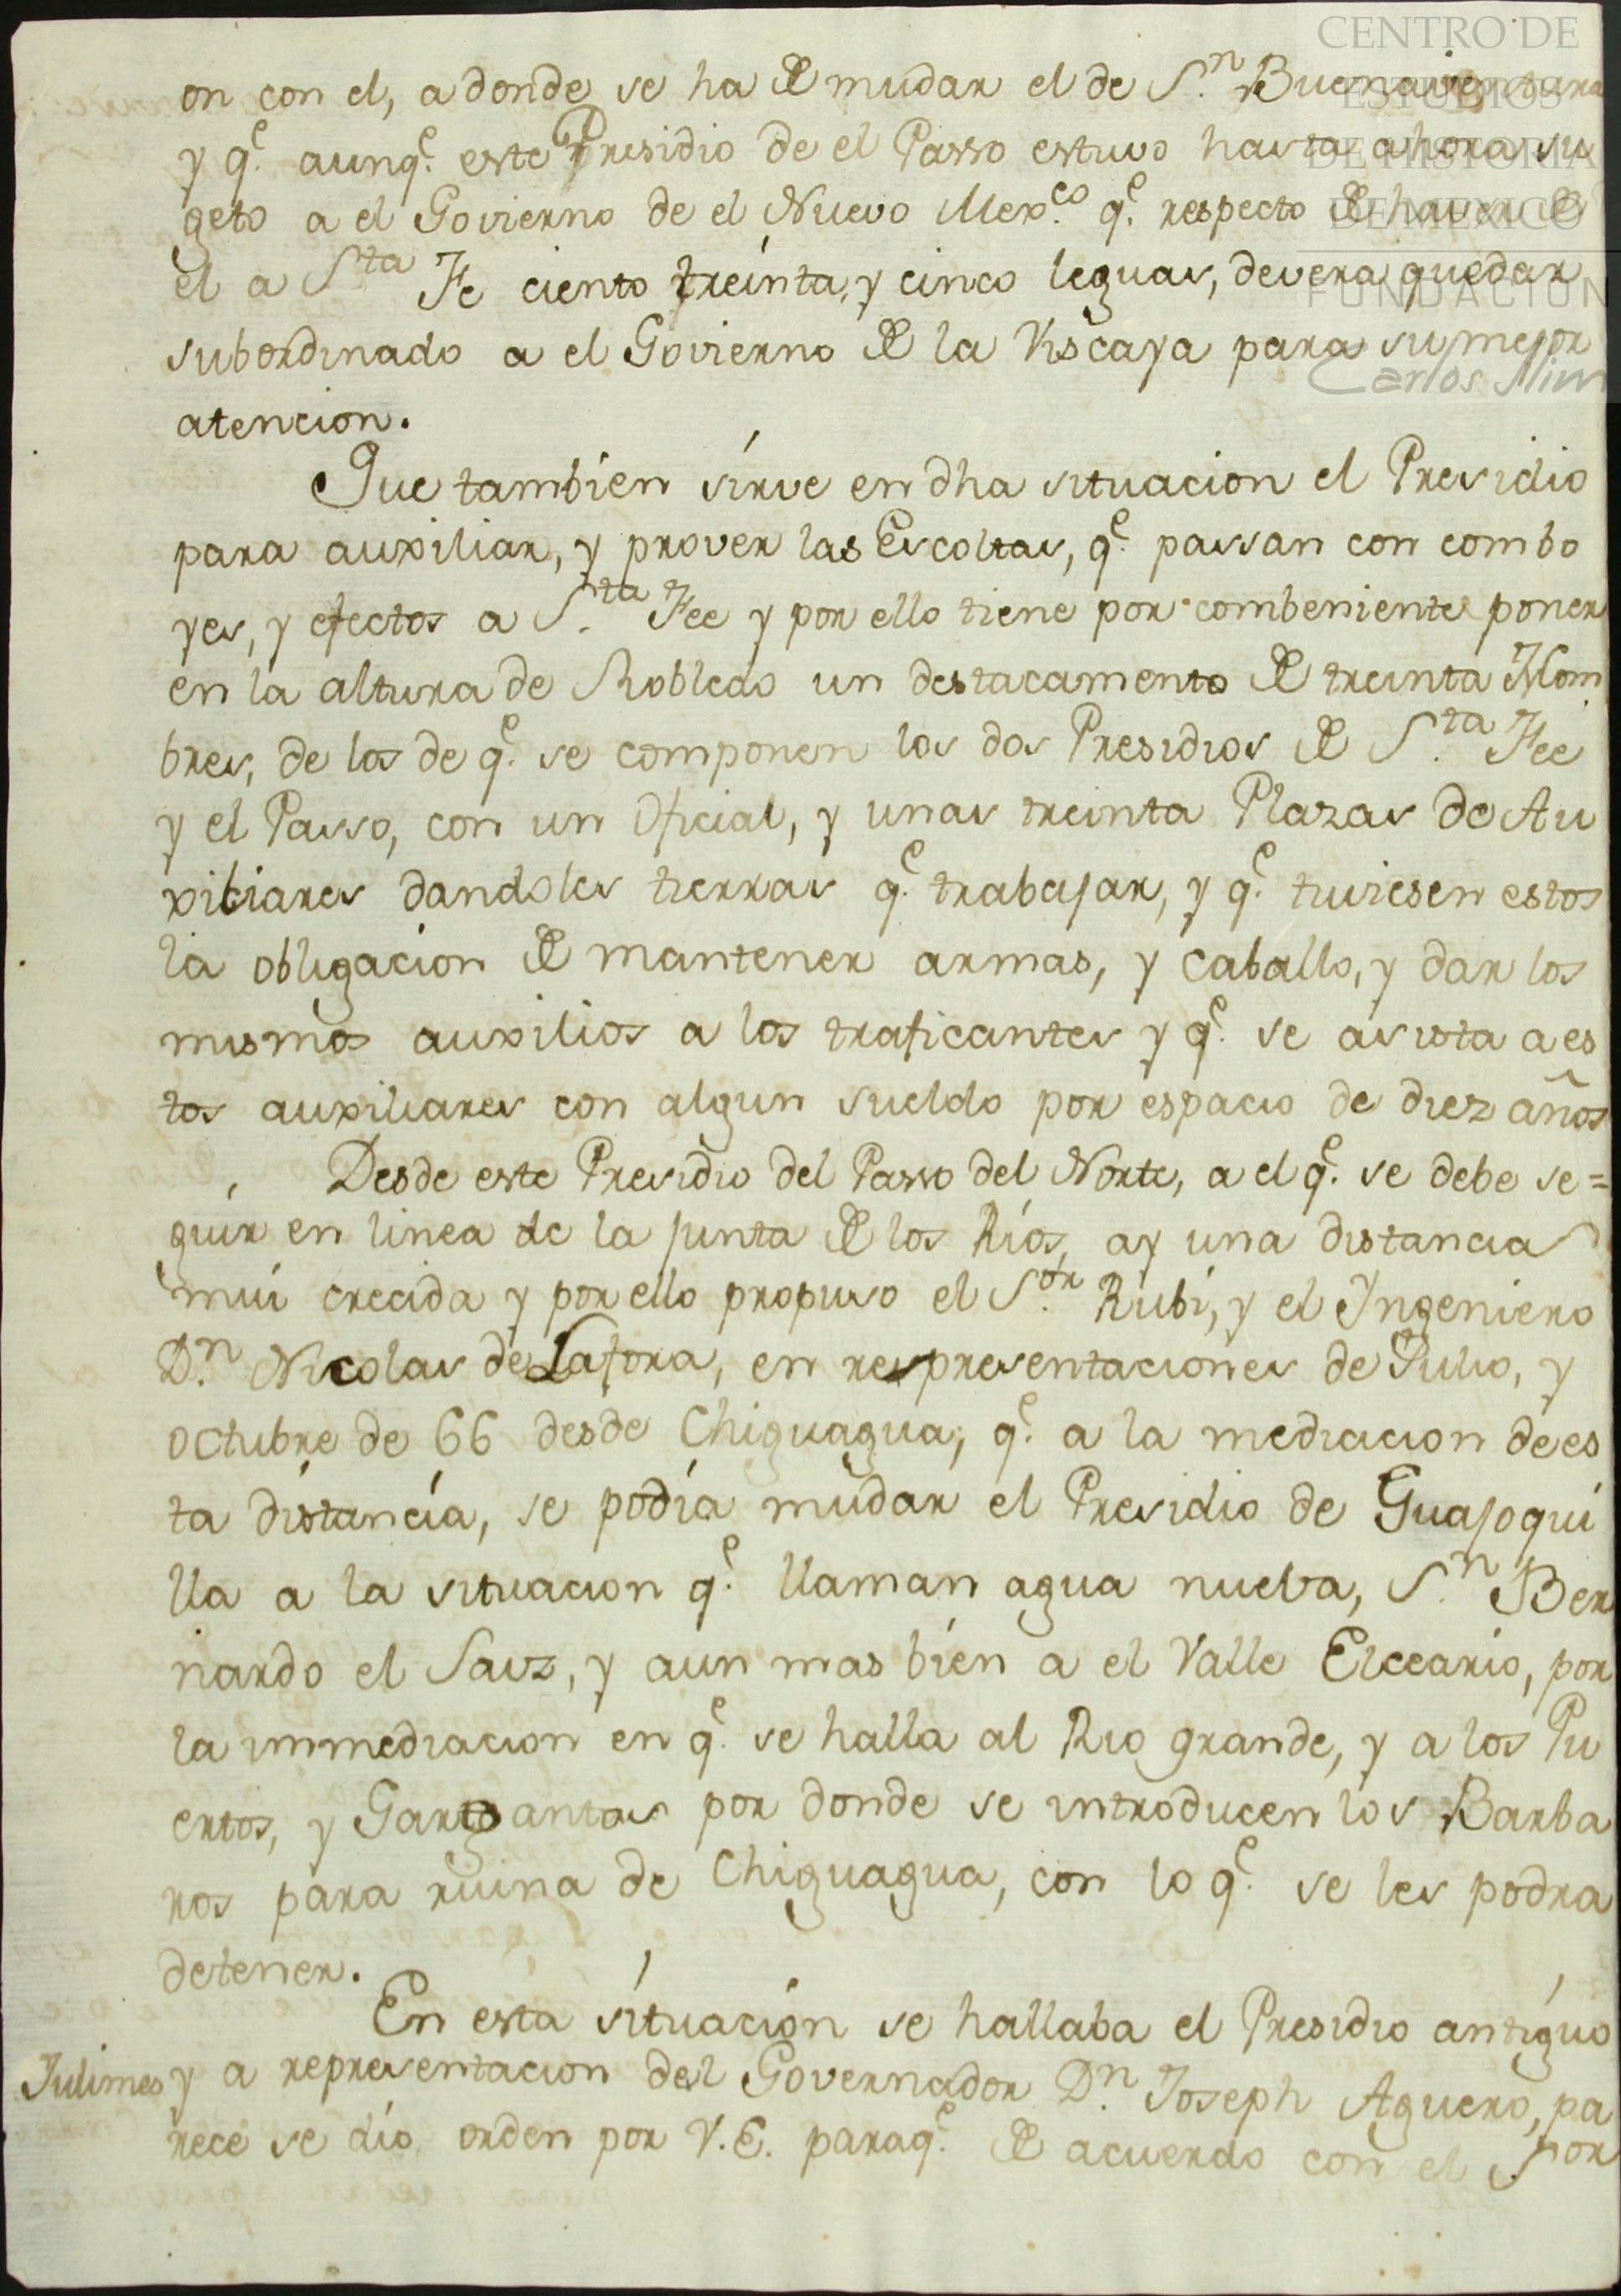 CENTRO DE
ESTUDIOS
DE HISTORIA
DE MEXICO
FUNDACION
Carlos Slim
on con el, a donde se ha de mudar el de S.n Buenaventura
y q.e aunq.e este Presidio de el Passo estuvo hasta ahora su
geto a el Govierno de el Nuevo Mex.co q.e respecto de haver de
el a Sta Fe ciento treinta, y cinco leguas, devera quedar
subordinado a el Govierno de la Viscaya para su mejor
atencion.
Que tambien sirve en dha situacion el Presidio
para auxiliar, y prover las Escoltas, q.e passan con combo
yes, y efectos a S.ta Fee y por ello tiene por combeniente poner
en la altura de Robledo un destacamento de treinta Hom
bres, de los de q.e se componen los dos Presidios de S.ta Fee
y el Passo, con un Oficial, y unas treinta Plazas de Au
xiliares dandoles tierras q.e trabajar, y q.e tuviesen estos
la obligacion de mantener armas, y caballo, y dar los
mismos auxilios a los traficantes y q.e se asista a es
tos auxiliares con algun sueldo por espacio de diez años
Desde este Presidio del Passo del Norte, a el q.e se debe se=
guir en linea de la junta de los Rios, ay una distancia
mui crecida y por ello propuso el S.or Rubi, y el Ingeniero
D.n Nicolas de Lafora, en respresentaciones de Julio, y
octubre de 66 desde Chiguagua, q.e a la mediacion de es
ta distancia, se podia mudar el Presidio de Guajoqui
lla a la situacion q.e llaman agua nueba, S.n Ber
nardo el Sauz, y aun mas bien a el Valle Elceario, por
la immediacion en q.e se halla al Rio grande, y a los Pu
ertos, y Gargantas por donde se introducen los Barba
ros para ruina de Chiguagua, con lo q.e se les podra
detener.
En esta situacion se hallaba el Presidio antiguo
Julimes y a representacion del Governador D.n Joseph Aguero, pa
rece se dio orden por V.E. paraq.e de acuerdo con el S.or